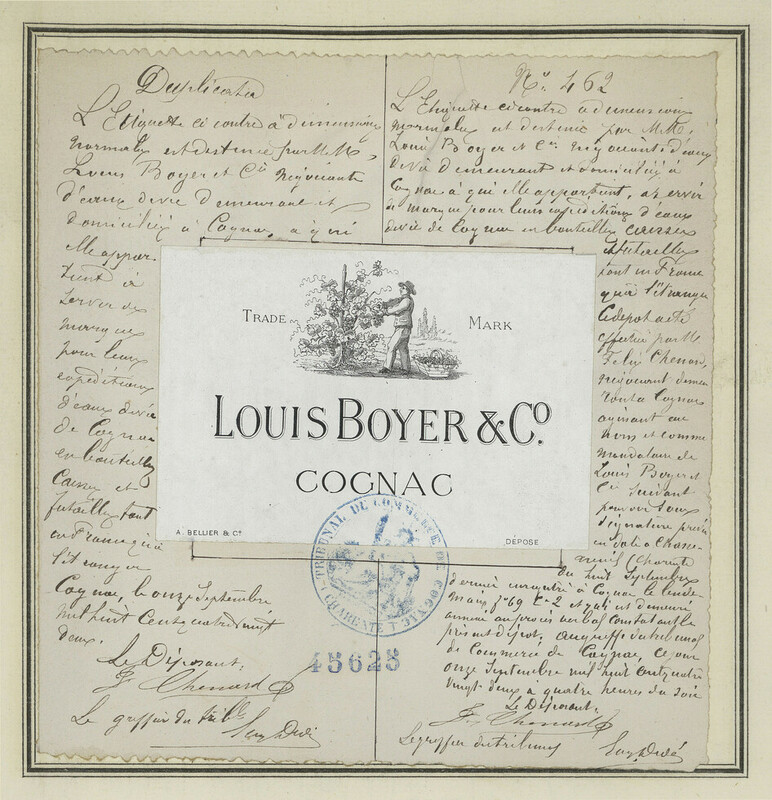 Duplicata
L'Etiquette ci contre à dimensions
normales est destinée par MM.
Louis Boyer et Cie Négociants
d'eaux de vie demeurant et
domiciliés à Cognac, à qui
elle appar-
tient à
servir de
marque
pour leurs
expéditions
d'eaux de vie
de Cognac
en bouteilles
Caisses et
futailles tant
en France qu'à
l'étranger
Cognac, le onze Septembre
mil huit Cent quatre vingt
deux.
Le Déposant:
F. Chenard
Le greffier du Trib.l
No. 462
L'Etiquette ci contre à dimensions
normales est destinée par MM.
Louis Boyer et Cie Négociants d'eaux
de vie demeurant et domiciliés à
Cognac à qui elle appartient, à servir
de marque pour leurs expéditions d'eaux
de vie de Cognac en bouteilles caisses
et futailles
tant en France
qu'à l'étranger
Ce dépôt a été
effectué par M.
Félix Chenard,
négociant demeu-
rant à Cognac
agissant au
nom et comme
mandataire de
Louis Boyer et
Cie suivant
pouvoir sous
signature privée
en date à Chasse-
neuil (Charente
du huit Septembre
dernier enregistré à Cognac le lende-
main fo 69 Co 2 et qui est demeuré
annexé au procès verbal constatant le
présent dépôt; au greffe du tribunal
de Commerce de Cognac, ce jour
onze Septembre mil huit cent quatre
vingt deux à quatre heures du soir
Le Déposant:
F. Chenard
Le greffier du tribunal
TRADE MARK
LOUIS BOYER & CO.
COGNAC
A. BELLIER & Cie
DÉPOSÉ
TRIBUNAL DE COMMERCE DE COGNAC
(CHARENTE)
45625